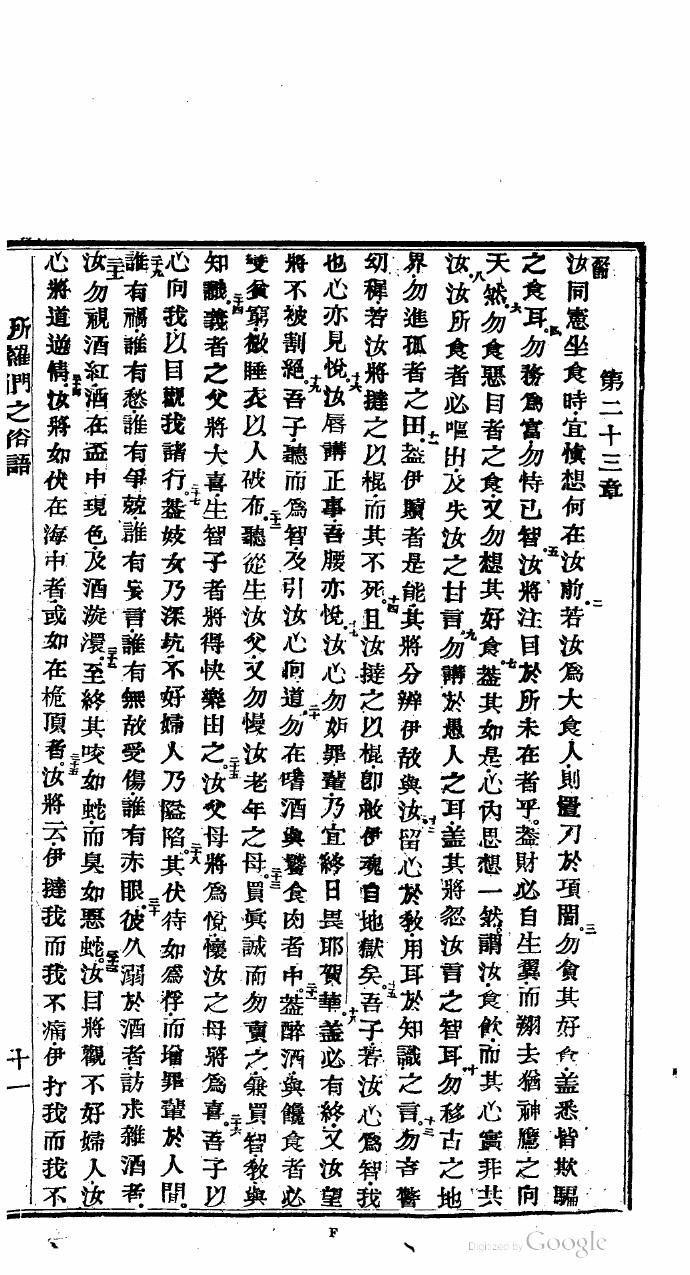 第二十三章
汝同憲坐食時宜慎想何在汝前若汝為大食人則置刀於項間勿貪其好食蓋悉皆欺騙
之食耳勿務為富勿恃已智汝將注目於所未在者乎蓋財必自生翼而翔去猶神鷹之向
天然勿食惡目者之食又勿想其好食蓋其如是心內思想一然謂汝食飲而其心實非共
汝汝所食者必嘔出及失汝之甘言勿講於愚人之耳蓋其將忽汝言之智耳勿移古之地
界勿進孤者之田蓋伊贖者是能其將分辨伊故與汝留心於教用耳於知識之言勿吝警
幼穉若汝將撻之以棍而其不死且汝撻之以棍卽救伊魂自地獄矣吾子若汝心為智我
也心亦見悅汝唇講正事吾腰亦悅汝心勿妒罪輩乃宜終日畏耶賀華蓋必有終又汝望
將不被割絕吾子聽而為智及引汝心向道勿在嗜酒與饕食肉者中蓋醉酒與饞食者必
受貧窮微睡衣以人破布聽從生汝父又勿慢汝老年之母買真誠而勿賣之兼買智教與
知識義者之父將大喜生智子者將得快樂由之汝父母將為悅懷汝之母將為喜吾子以
心向我以目觀我諸行蓋妓女乃深坑不好婦人乃隘陷其伏待如為俘而增罪輩於人間
誰有禍誰有愁誰有爭兢誰有妄言誰有無故受傷誰有赤眼彼久溺於酒者訪求雜酒者
汝勿視酒紅酒在盃中現色及酒漩澴至終其咬如蛇而臭如惡蛇汝目將觀不好婦人汝
心將道逆情汝將如伏在海中者或如在桅頂者汝將云伊撻我而我不痛伊打我而我不
所羅門之俗語
十一
F
Digitized by Google